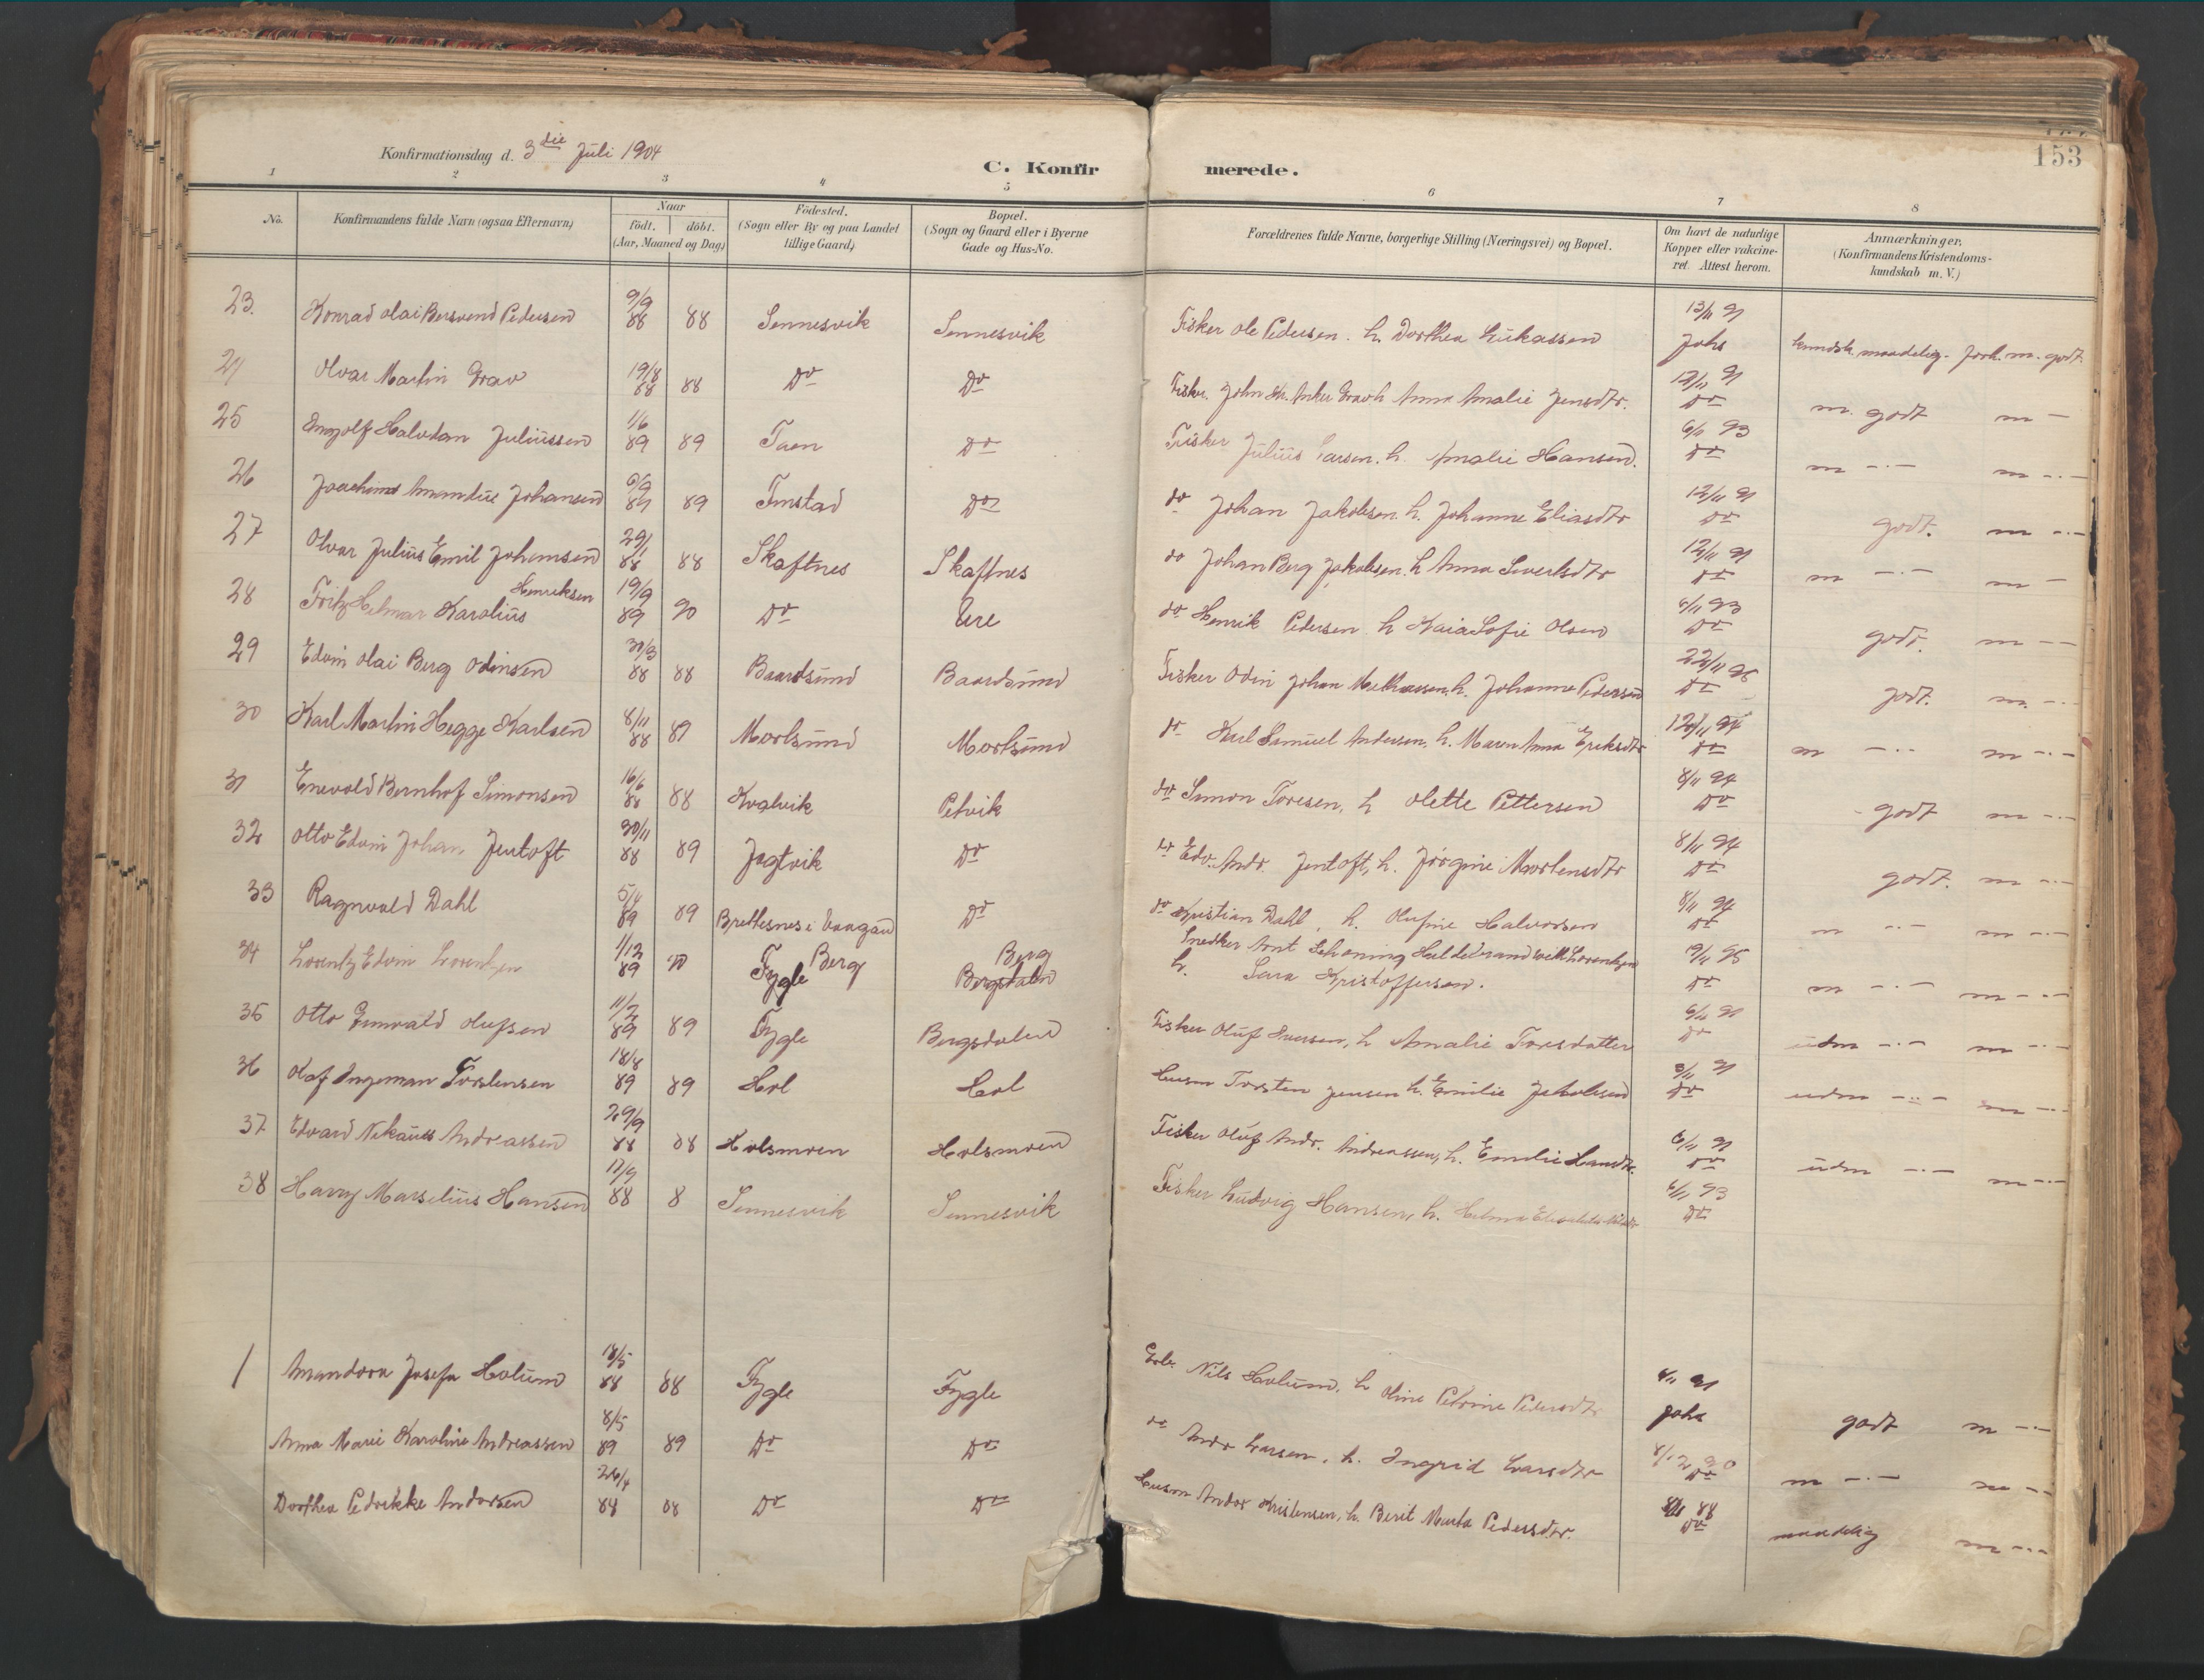 Konfirmationsdag d. 3die Juli 1904
C. Konfirmerede.
153
1 2 3 4 5 6 7 8
No. Konfirmandens fulde Navn (ogsaa Efternavn) Naar født. døbt. (Aar, Maaned og Dag) Fødested. (Sogn eller By og paa Landet tillige Gaard) Bopæl. (Sogn og Gaard eller i Byerne Gade og Hus-No. Forældrenes fulde Navne, borgerlige Stilling (Næringsvei) og Bopæl. Om havt de naturlige Kopper eller vakcineret. Attest herom. Anmærkninger. (Konfirmandens Kristendomskundskab m. V.)
23. Konrad Olai Bersvend Pedersen 9/9 88 88 Sennesvik Sennesvik Fisker Ole Pedersen. h. Dorthea Lukassen 13/11 91 Johs kundsk. maadelig. forh. m. godt.
24 Olvar Martin Grav 19/8 88 88 Do Do Fisker. John Anker Grav h Anna Amalie Jensdtr. 12/11 91 Do m. godt m —
25 Ingolf Halvdan Juliussen 1/6 89 89 Taen Do Fisker Julius Larsen. h. Amalie Hansen. 6/11 93 Do m -.- m -.-
26 Joachim Amandus Johansen 9/9 89 89 Finstad Do do Johan Jakobsen. h. Johanne Eliasdtr 12/11 91 Do godt. m -.-
27 Olvar Julius Emil Johansen 29/1 88 88 Skaftnes Skaftnes do Johan Berg Jakobsen. h Anna Sivertsdtr 12/11 91 Do m -.- m -
28 Fritz Helmar Karolius Henriksen 19/9 89 90 Do Ure do Henrik Pedersen h Kaia Sofie Olsen 6/11 93 Do godt. m --
29 Edvin Olai Berg Odinsen 30/3 88 88 Baardsund Baardsund Fisker Odin Johan Mathiassen h. Johanne Pedersen 22/11 Do godt. m. -.
30 Karl Martin Hegge Karlsen 8/11 88 89 Mortsund Mortsund do Karl Samuel Andersen, h. Maren Anna Eriksdtr 12/11 94 Do m -.- m -.-
31 Enevold Bernhof Simonsen 16/6 88 88 Kvalvik Petvik do Simon Toresen, h Olette Pettersen 8/11 94 Do godt m -.-
32 Otto Edvin Johan Jentoft 30/11 88 89 Jagtvik Do do Edv. Andr. Jentoft, h. Jørgine Mortensdtr 8/11 94 Do godt. m -.-
33 Ragnvald Dahl 5/4 89 89 Brettesnes i Vaagan Do do Kristian Dahl, h. Olufine Halvorsen 8/11 94 Do m -.- m -.-
34 Lorentz Edvin Lorentzen 1/12 89 Berg Fygle Berg Bergsdalen Snedker Arnt Schøning Lorentzen h. Sara Kristoffersen. 19/11 95 Do m -.- m -.-
35 Otto Enevald Olufsen 11/2 89 89 Fygle Bergsdalen Fisker Oluf Iversen, h Amalie Torsdatter 6/11 91 Do udm -.- m -.-
36 Olaf Ingeman Torstensen 18/8 89 89 Hol Hol Husm Torsten Jensen h. Emilie Jakobsen 91 Do udm -.- m -.-
37 Edvard Nikaues Andreassen 29/9 88 88 Holsmoen Holsmoen Fisker Oluf Andr. Andreassen, h. Emelie Hansdtr. 6/11 91 Do udm -.- m -.-
38 Harry Marselius Hansen 17/9 88 8 Sennesvik Sennesvik Fisker Ludvig Hansen, h. Helma 6/11 93 Do
1 Amandora Josefa Holund 18/5 88 88 Fygle Fygle Nils Holund, h Oline Petrine Pedersdtr 91 Johs godt m -.-
Anna Marie Karoline Andreassen 8/5 89 89 Do Do do Andr Larsen, h. Ingrid Larsdtr 8/12 90 Do m -.- m --
Dorthea Pedrikke Andorsen 26/4 88 88 Do Do Husm Andor Kristensen, h. Berit Marta Pedersdtr. 88 Do maadelig m -.-